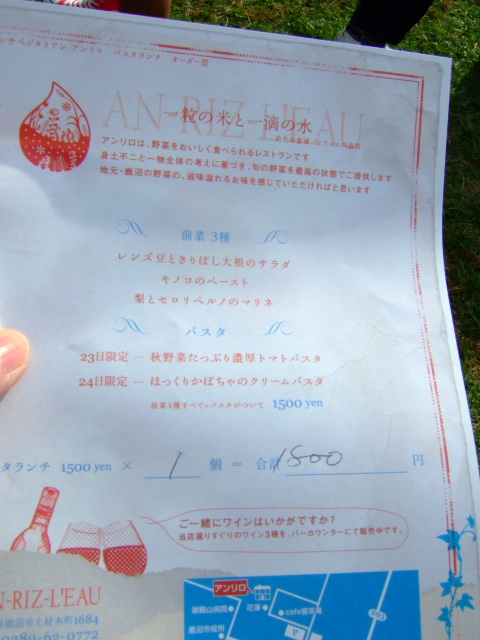 ンチベジタリアン アンリロ パスタランチ オーダー票
AN-RIZ-L'EAU
一粒の米と一滴の水
アンリロは、野菜をおいしく食べられるレストランです
身土不二と一物全体の考えに基づき、旬の野菜を最高の状態でご提供します
地元・鹿沼の野菜の、滋味溢れるお味を感じていただければと思います
前菜 3種
レンズ豆ときりぼし大根のサラダ
キノコのペースト
梨とセロリペルノのマリネ
パスタ
23日限定 … 秋野菜たっぷり濃厚トマトパスタ
24日限定 … ほっくりかぼちゃのクリームパスタ
前菜3種すべて+パスタがついて 1500 yen
タランチ 1500 yen × 1 個 = 合計 1500 円
ご一緒にワインはいかがですか?
当店選りすぐりのワイン3種を、バーカウンターにて販売中です。
N-RIZ-L'EAU
鹿沼市上材木町1684
0289-62-0772
アンリロ
御殿山病院
花湯
cafe饗茶庵
鹿沼市役所
P
293